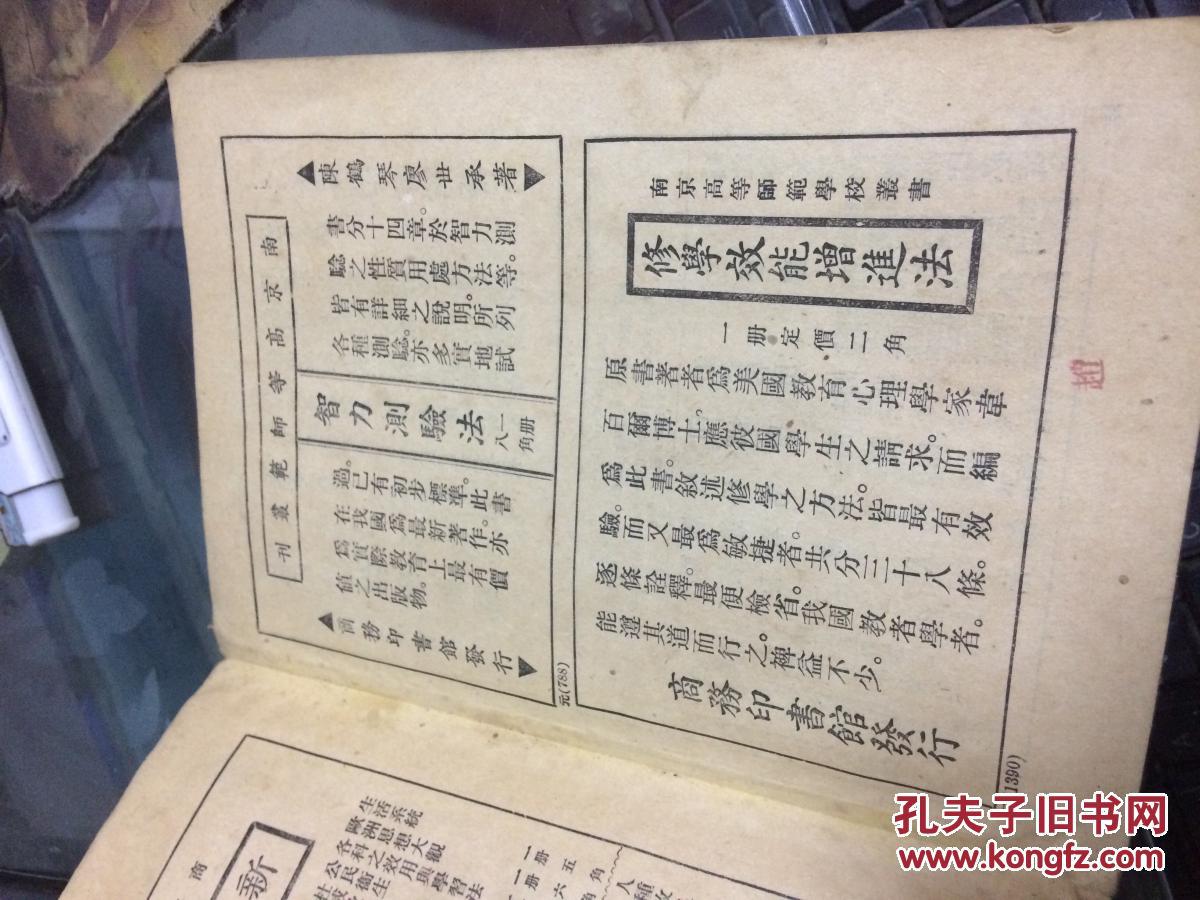 南京高等師範學校叢書
修學效能增進法
一册定價二角
原書著者爲美國教育心理學家韋
百爾博士。應彼國學生之請求。而編
爲此書敘述修學之方法。皆最有效
驗。而又最爲敏捷者共分三十八條。
逐條詮釋。最便檢省。我國教者學者。
能遵其道而行之。裨益不少。
商務印書館發行
1390)
南京高等師範叢刊
陳鶴琴廖世承著
書分十四章。於智力測
驗之性質用處方法等。
皆有詳細之說明。所列
各種測驗。亦多實地試
智力測驗法
一册
八角
過。已有初步標準。此書
在我國爲最新著作。亦
爲實際教育上最有價
值之出版物。
商務印書館發行
元(788)
趙
商
新
生活系統
歐洲思想大觀
各科之效用與學習法
公民衞生
一册五角
一册六角
孔夫子旧书网
www.kongfz.com